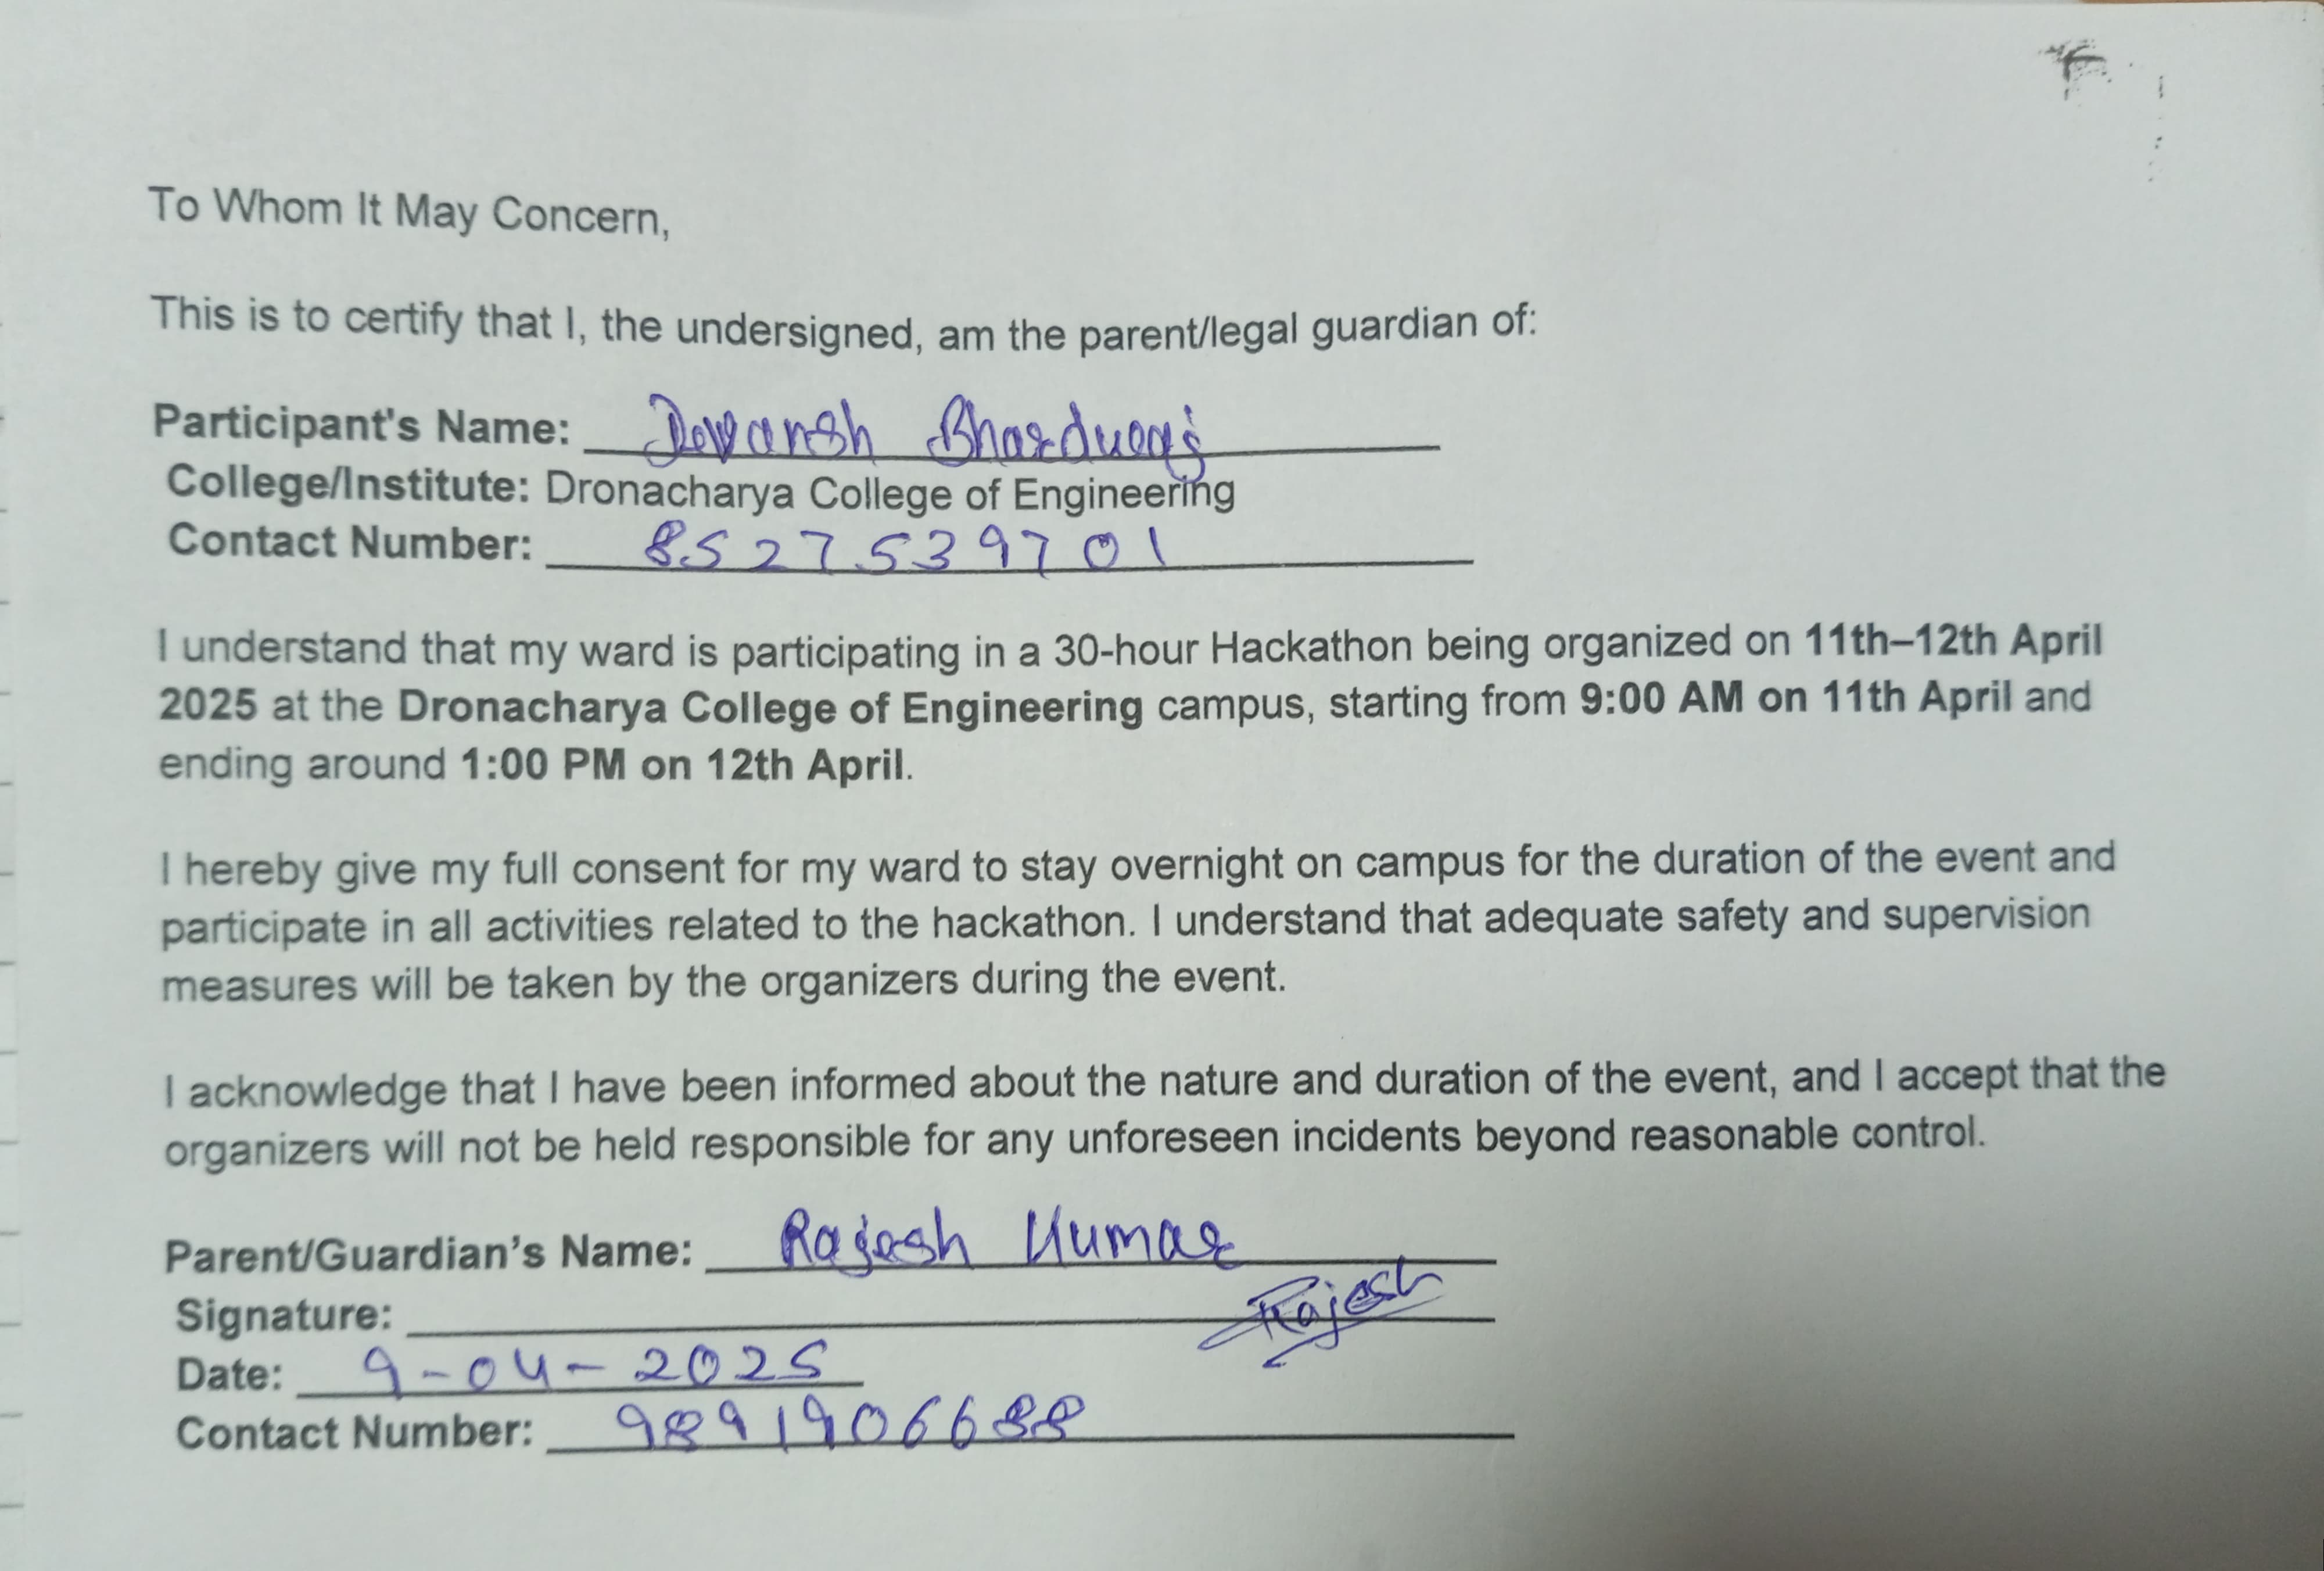 To Whom It May Concern,
This is to certify that I, the undersigned, am the parent/legal guardian of:
Participant's Name: Devansh Bharduaj
College/Institute: Dronacharya College of Engineering
Contact Number: 8527539701
I understand that my ward is participating in a 30-hour Hackathon being organized on 11th–12th April
2025 at the Dronacharya College of Engineering campus, starting from 9:00 AM on 11th April and
ending around 1:00 PM on 12th April.
I hereby give my full consent for my ward to stay overnight on campus for the duration of the event and
participate in all activities related to the hackathon. I understand that adequate safety and supervision
measures will be taken by the organizers during the event.
I acknowledge that I have been informed about the nature and duration of the event, and I accept that the
organizers will not be held responsible for any unforeseen incidents beyond reasonable control.
Parent/Guardian’s Name: Rajesh Kumar
Signature: Rajesh
Date: 9-04-2025
Contact Number: 9891906688